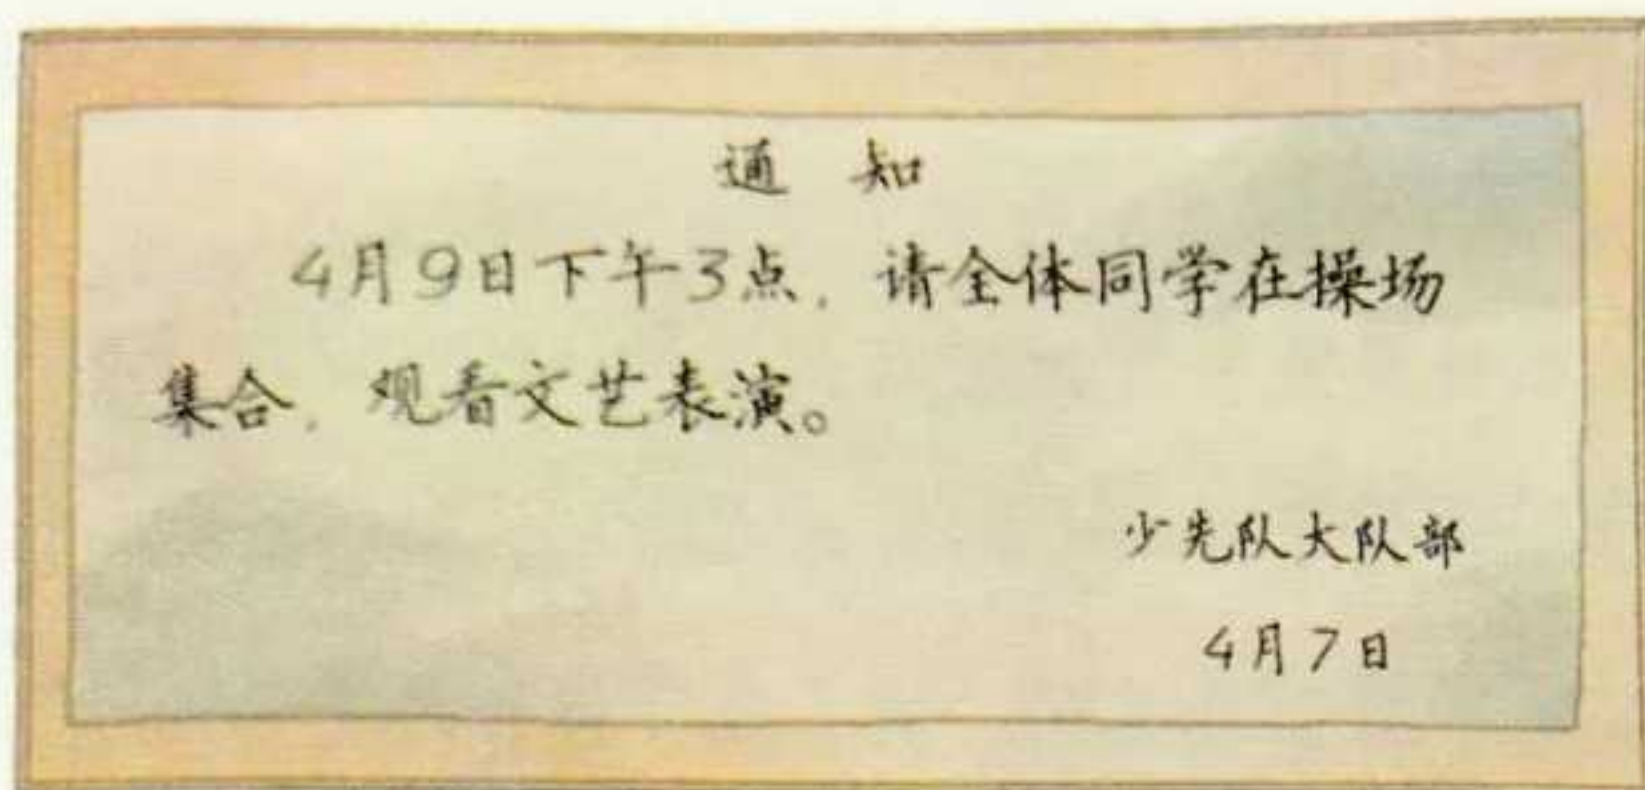 通 知
4月9日下午3点，请全体同学在操场
集合，观看文艺表演。
少先队大队部
4月7日